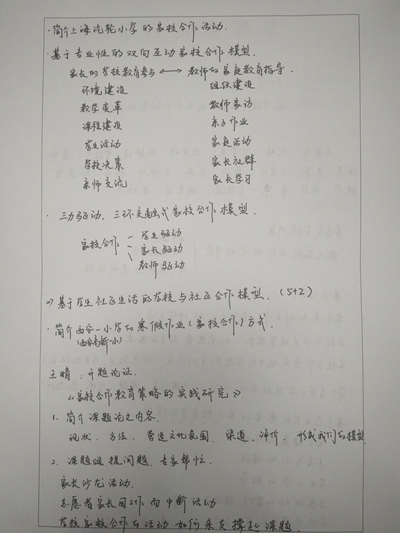 ·简介上海汽轮小学的家校合作活动.
·基于专业性的双向互动家校合作模型.
家长的学校教育参与 ←→ 教师的家庭教育指导.
环境建设 组织建设
教学改革 教师家访
课程建设 亲子作业
学生活动 家庭活动
学校决策 家长社群
亲师交流 家长学习
· 三力驱动、三环交融式家校合作模型.
学生驱动
家校合作 家长驱动
教师驱动
基于学生社区生活的学校与社区合作模型. (5+2)
·简介西安一小学的寒假作业(家校合作)方式.
(西安高新一小)
王晴. 开题论证.
《家校合作教育策略的实践研究》
1. 简介课题论文内容.
现状、方法、营造文化氛围、渠道、评价、形成我们的模型
2. 课题组提问题、专家帮忙.
家长沙龙活动.
志愿者家长因工作而中断活动
学校家校合作的活动如何来支撑起课题.